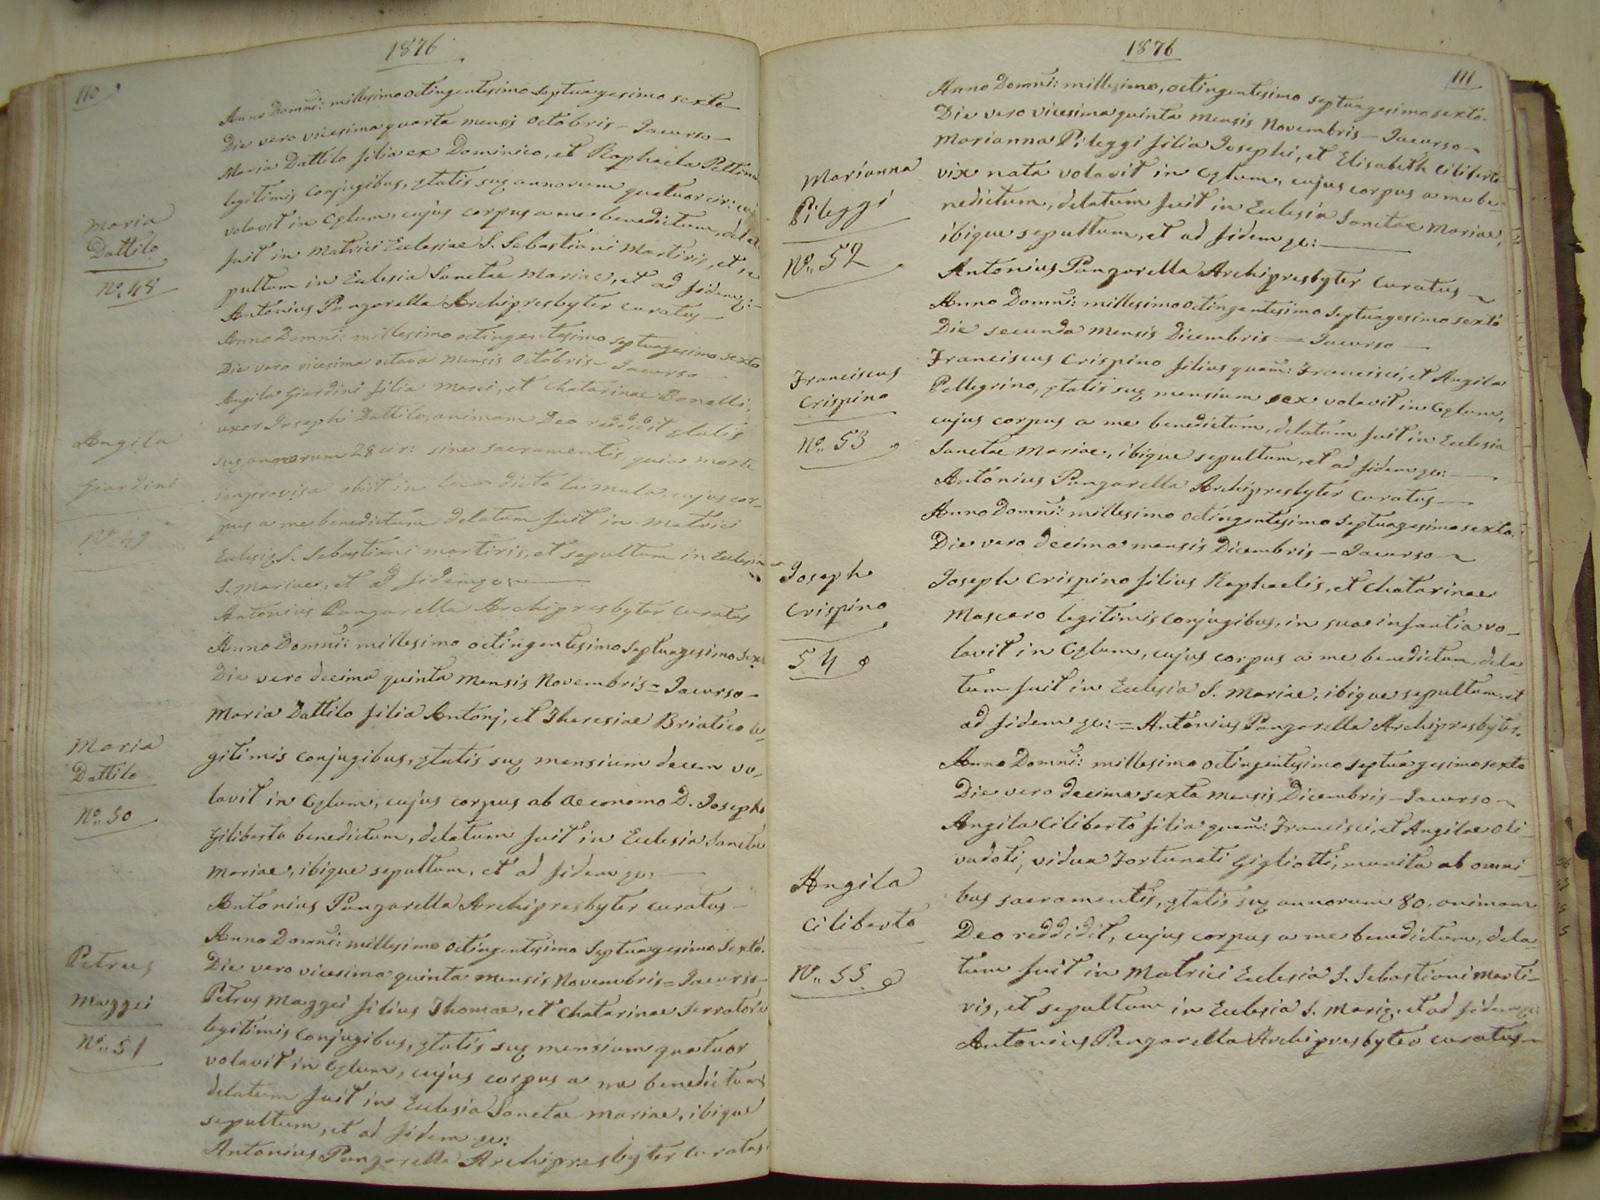 1876
110
Anno Domni: millesimo octingentesimo Septuagesimo sexto
Die vero vicesima quarta mensis Octobris – Iacurso –
Maria Dattilo
Nº 48
Maria Dattilo filia ex Dominico, et Raphaela Pettina
legitimis conjugibus, ętatis suę annorum quatuor cir:
volavit in Cęlum, cujus corpus a me benedictum,
fuit in Matrici Ecclesiae S. Sebastiani Martiris, et se
pultum in Eclesia Sanctae Mariae, et ad fidem
Antonius Pungorella Archipresbyter Curatus –
Anno Domni: millesimo octingentesimo septuagesimo sexto
Die vero vicesima octava mensis Octobris – Iacurso
Angila
Giardini
Nº 49
Angila Giardini filia Marci, et Chatarinae Donelli,
uxor Joseph Dattilo, animam Deo reddidit ętatis
suę annorum 28 cir: sine sacramentis quia morte
improvisa obiit in loco dicto cujus cor-
pus a me benedictum delatum fuit in Matrici
Eclesię S. Sebastiani martiris, et sepultum in Eclesia
S. Mariae, et ad fidem
Antonius Pungorella Archipresbyter Curatus
Anno Domni: millesimo octingentesimo Septuagesimo Sex
Die vero decima quinta mensis Novembris = Iacurso –
Maria
Dattilo
Nº 50
Maria Dattilo filia Antonj, et Theresiae Briatico le-
gitimis conjugibus, ętatis suę mensium decem vo-
lavit in Cęlum, cujus corpus ab Oeconomo D. Josepho
Giliberto benedictum, delatum fuit in Eclesia Sanctae
Mariae, ibique sepultum, et ad fidem
Antonius Pungorella Archipresbyter Curatus –
Anno Domni: millesimo Octingentesimo Septuagesimo Sexto.
Die vero vicesima quinta mensis Novembris = Iacurso –
Petrus
Mazzei
Nº 51
Petrus Mazzei filius Thomae, et Chatarinae Serratore
legitimis conjugibus, ętatis suę mensium quatuor
volavit in Cęlum, cujus corpus a me benedictum
delatum fuit in Eclesia Sanctae Mariae, ibique
sepultum, et ad fidem
Antonius Pungorella Archipresbyter Curatus
1876
111
Anno Domni: millesimo, octingentesimo septuagesimo sexto.
Die vero vicesima quinta mensis Novembris – Iacurso –
Marianna
Pileggi
Nº 52
Marianna Pileggi filia Josephi, et Elisabeth Ciliberto
vix nata volavit in Cęlum, cujus corpus a me be-
nedictum, delatum fuit in Eclesia Sanctae Mariae,
ibique sepultum, et ad fidem
Antonius Pungorella Archipresbyter Curatus –
Anno Domni: millesimo octingentesimo Septuagesimo sexto
Die secunda Mensis Dicembris = Iacurso –
Franciscus
Crispino
Nº 53
Franciscus Crispino filius quam: Francisci, et Angila
Pellegrino, ętatis suę mensium sex volavit in Cęlum,
cujus corpus a me benedictum, delatum fuit in Eclesia
Sanctae Mariae, ibique sepultum, et ad fidem
Antonius Pungorella Archipresbyter Curatus –
Anno Domni: millesimo Octingentesimo Septuagesimo sexto.
Die vero decima mensis Dicembris – Iacurso –
Joseph
Crispino
54
Joseph Crispino filius Raphaelis, et Chatarinae
Mascaro legitimis conjugibus, in sua infantia vo-
lavit in Cęlum, cujus corpus a me benedictum, dela
tum fuit in Eclesia S. Mariae, ibique sepultum, et
ad fidem = Antonius Pungorella Archipresbyter.
Anno Domni: millesimo octingentesimo septuagesimo sexto
Die vero decima sexta mensis Dicembris – Iacurso –
Angila
Ciliberto
Nº 55
Angila Ciliberto filia quam: Francisci, et Angilae Oli-
vadoti, vidua Fortunati Gigliotti, munita ab omni-
bus sacramentis, ętatis suę annorum 80, animam
Deo reddidit, cujus corpus a me benedictum, dela-
tum fuit in Matrici Eclesia S. Sebastiani Marti-
ris, et sepultum in Eclesia S. Marię, et ad fidem
Antonius Pungorella Archipresbyter Curatus –